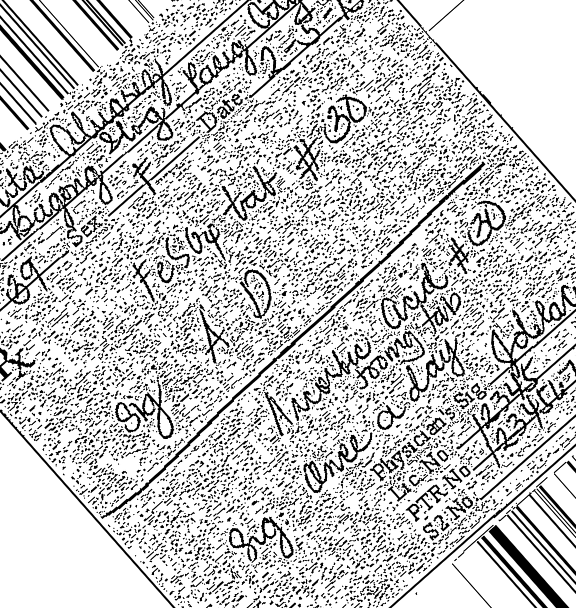 Bagong Ilog, Pasig City
69 Sex F Date 2-5-
Rx
FeSO4 tab #30
Sig A D
Ascorbic Acid #30
500mg tab
Sig Once a day
Physician's Sig
Lic. No 12345
PTR No 1234567
S2 No